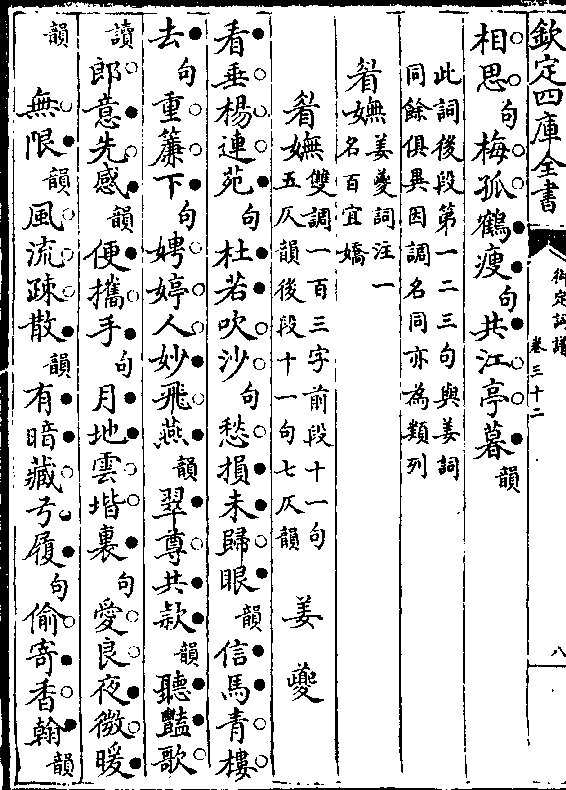 欽定四庫全書
御定詞譜 卷三十二
八
相思句梅孤鶴瘦句共江亭暮韻
此詞後段第一二三句與姜詞
同餘俱異因調名同亦為類列
眉嫵姜夔詞注一
名百宜嬌
眉嫵雙調一百三字前段十一句
五仄韻後段十一句七仄韻 姜夔
看垂楊連苑句杜若吹沙句愁損未歸眼韻信馬青樓
去句重簾下句娉婷人妙飛燕韻翠尊共款韻聽豔歌
讀郎意先感韻便攜手句月地雲堦裏句愛良夜微暖
韻無限韻風流疎散韻有暗藏弓履句偷寄香翰韻